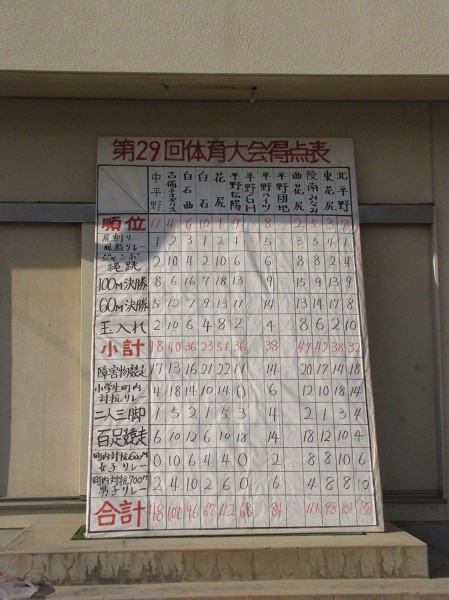 第29回体育大会得点表
中平野 吉備 白石西 白石 花尻 平野松陽 平野GH 平野ハイツ 平野団地 西花尻 陵南みなみ 東花尻 北平野
順位 11 4 6 10 1 9 8 2 5 3 7
風船割りリレー 1 2 3 1 2 4 5 3 5 4 1
ジャンボ縄跳 2 10 4 2 10 6 6 8 8 2 4
100M決勝 8 6 16 7 18 13 9 15 9 13 9
60M決勝 5 12 7 9 13 11 14 13 14 17 8
玉入れ 2 10 6 4 8 2 4 8 6 2 10
小計 18 40 36 23 51 36 38 47 42 38 32
障害物競走 17 13 16 21 22 11 14 20 17 14 18
小学生町内対抗リレー 4 18 14 10 14 0 6 12 10 18 14
二人三脚 1 5 2 1 5 3 4 2 1 3 4
百足競走 6 10 12 6 10 18 14 18 12 10 4
町内対抗600M女子リレー 0 10 6 4 4 0 2 8 8 10 6
町内対抗700M男子リレー 2 4 10 2 6 0 6 4 8 8 10
合計 48 100 96 67 112 68 84 111 98 101 88